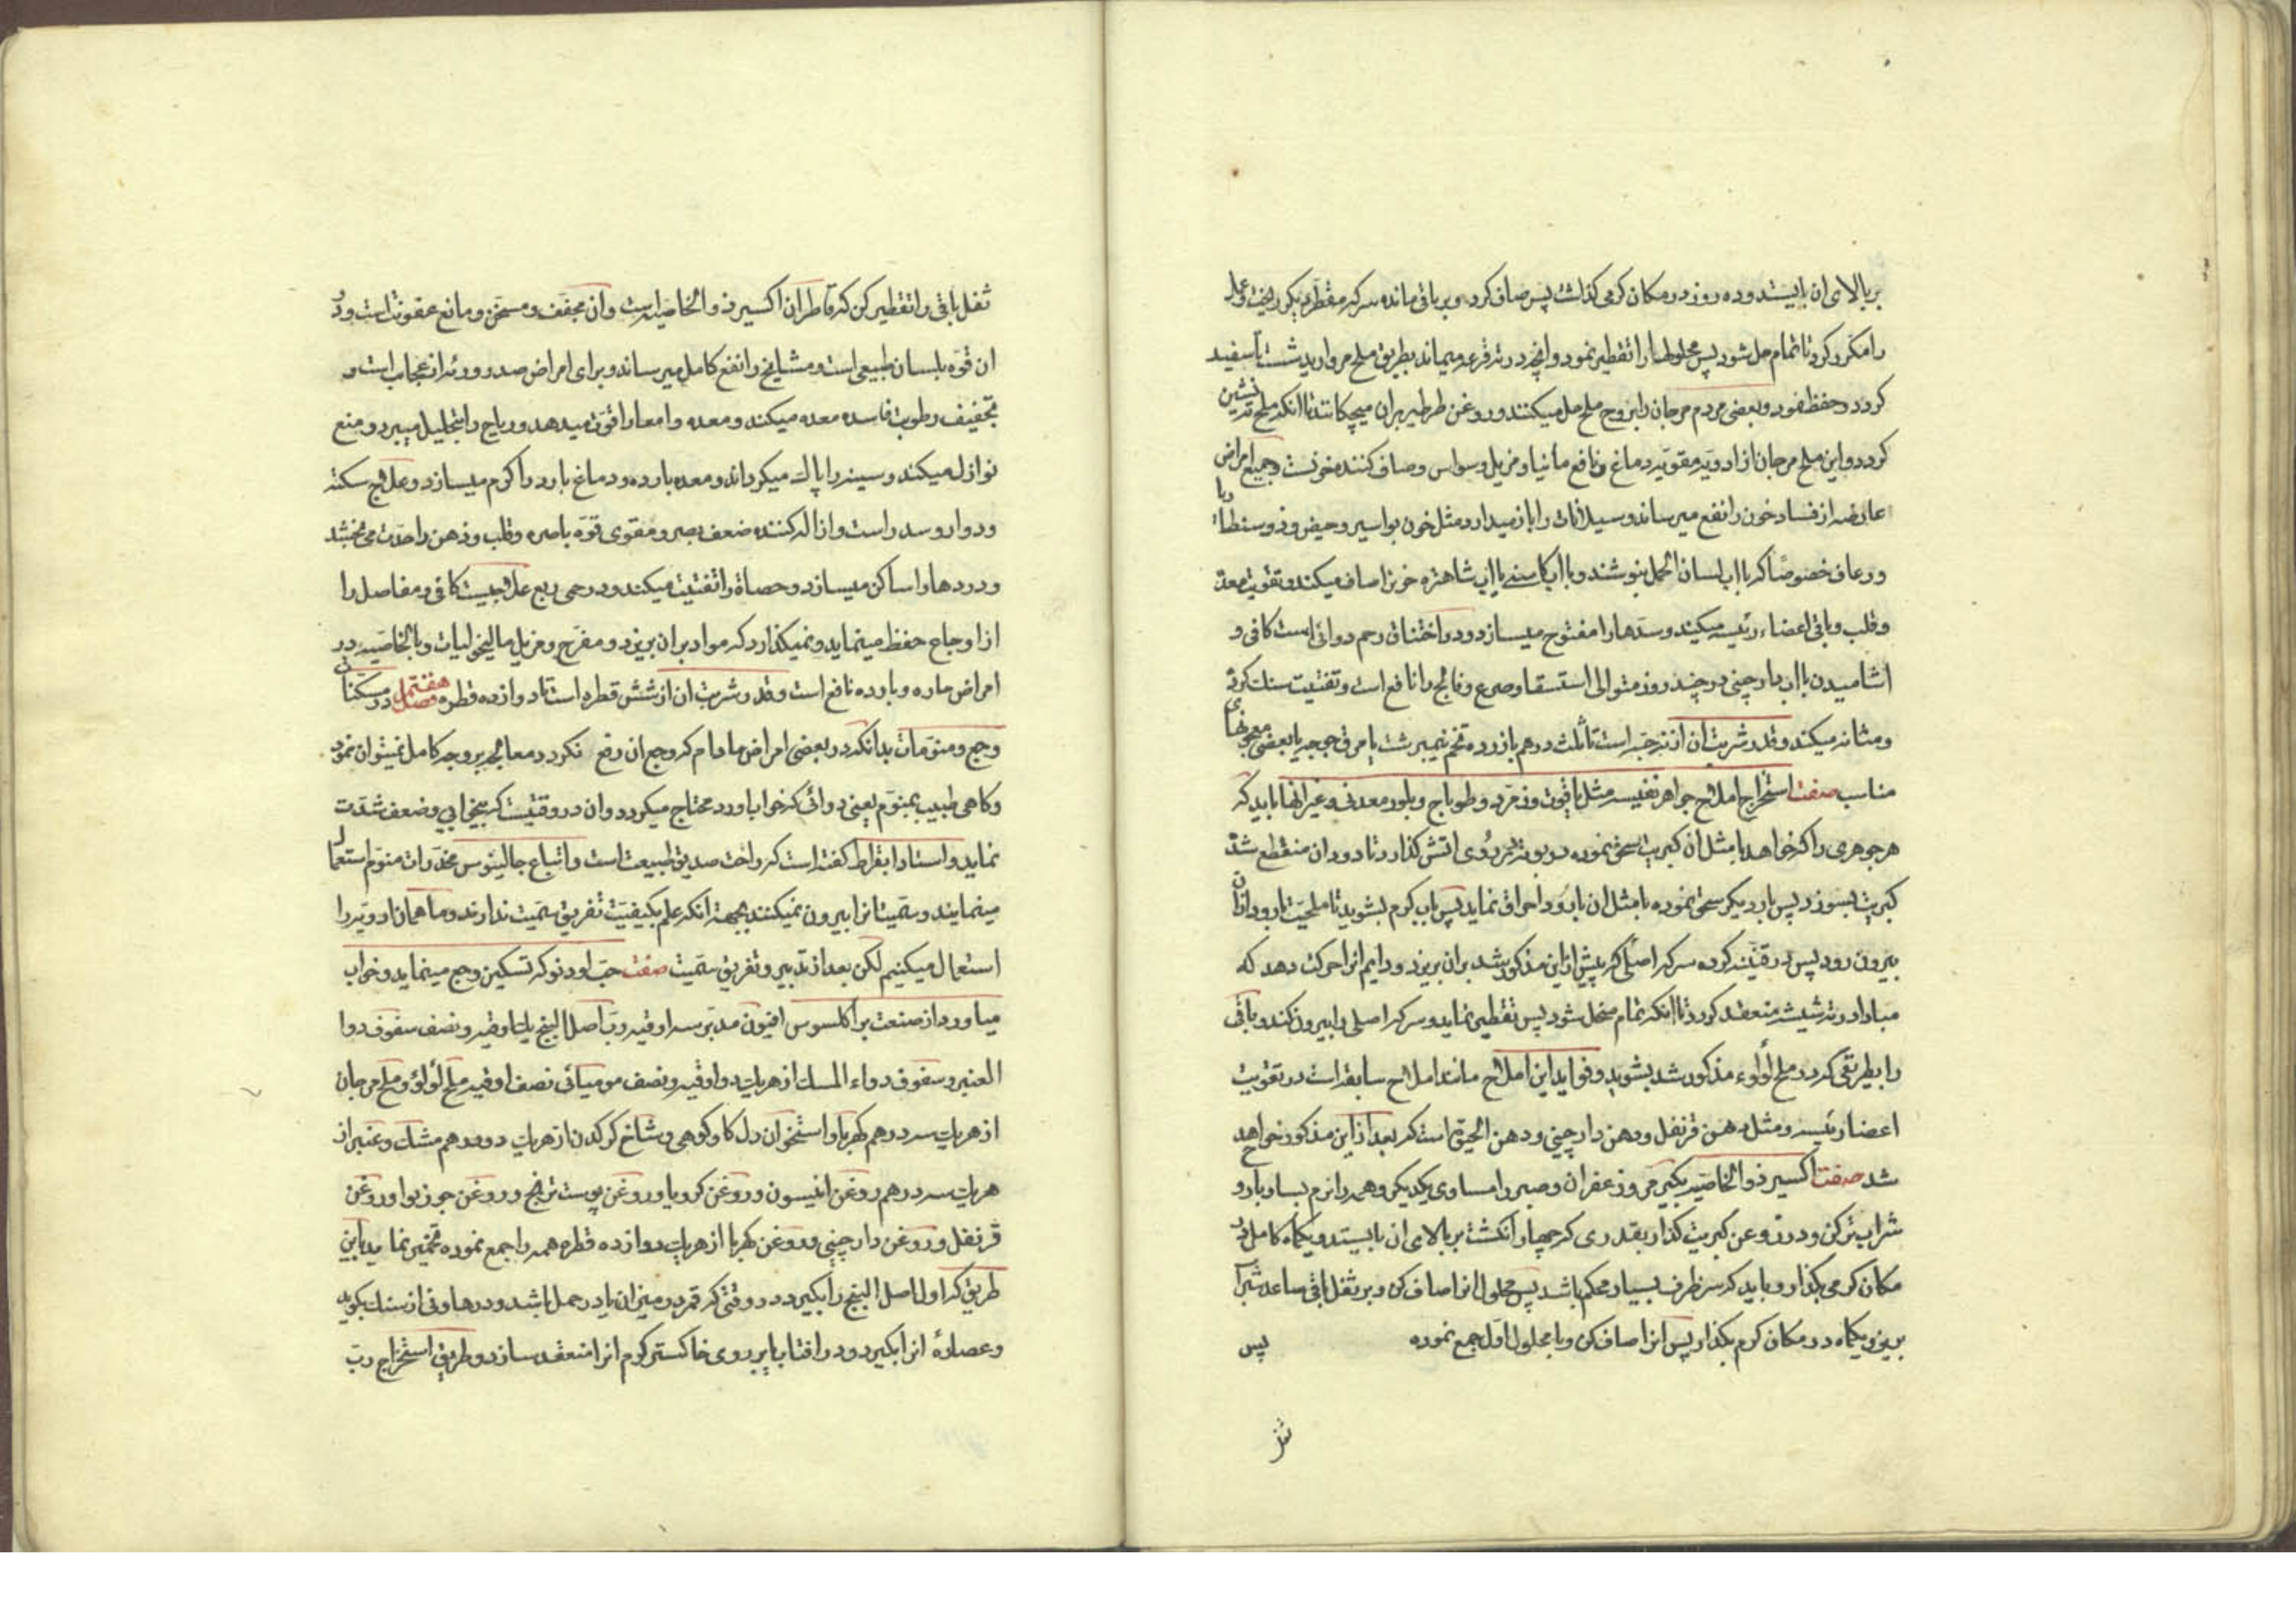 بر بالای ان بایستد و ده روز در مکان کرمی کذاشت پس صاف کرد و بر باقی مانده سرکه مقطر دیکر ریخت و عمل
را مکرر کرد تا تمام حل شود پس محلولها را تقطیر نمود و انچه در ته قرعه میماند بطریق ملح مروارید شست تا سفید
کردد و حفظ نمود و بعضی مردم مرجان را بروح ملح حل میکنند و روغن طرطیر بران میچکانند تا انکه ملح ته نشین
کردد و این ملح مرجان از ادویه مقویه دماغ و نافع مانیا و مزیل وسواس و صاف کننده خونست و جمیع امراض
عارضه از فساد خون را نفع میرساند و سیلانات را باز میدارد مثل خون بواسیر و حیض و ذوسنطاریا
و رعاف خصوصًا که باآب لسان الحمل بنوشند و باآب کاسنی یاآب شاهتره خونرا صاف میکند و تقویت معده
و قلب و باقی اعضاء رئیسه میکند و سدها را مفتوح میسازد و در اختناق رحم دوائی است کافی و
اشامیدن باآب دارچینی در چند روز متوالی استسقا و صرع و فالج را نافع است و تفتیت سنك کرده
و مثانه میکند و قدر شربت ان از نه حبه است تا ثلث درهم با زرده تخم نیمبرشت یا مرق جوجه یا بعضی معجونهای
مناسب صفت استخراج املاح جواهر نفیسه مثل یاقوت و زمرد و طوباج و بلور معدنی و غیر انها باید که
هر جوهری را که خواهد با مثل ان کبریت سحق نموده در بوته بر روی اتش کذارد تا دود ان منقطع شده
کبریت بسوزد پس بار دیکر سحق نموده با مثل ان بارود احراق نماید پس باب کرم بشوید تا ملحیت بارود ازان
بیرون رود پس در قنینه کرده سرکه اصلی که پیش از این مذکور شد بران بریزد و دایم انرا حرکت دهد که
مبادا در ته شیشه منعقد کردد تا انکه تمام منحل شود پس تقطیر نماید و سرکه اصلی را بیرون کند و باقی
را بطریقی که در ملح لؤلوء مذکور شد بشوید و فواید این املاح مانند املاح سابقه است در تقویت
اعضاء رئیسه و مثل دهن قرنفل و دهن دارچینی و دهن الحیوة است که بعد از این مذکور خواهد
شد صفت اکسیر ذو الخاصیه بکیر مر و زعفران و صبر را مساوی یکدیکر و همه را نرم بساو با رو
شراب تر کن و در روغن کبریت کذار بقدری که چهار انکشت بر بالای ان بایستد و یکماه کامل در
مکان کرمی بکذار و باید که سر ظرف بسیار محکم باشد پس محلول انرا صاف کن و بر ثفل باقی ساعد شراب
بریز و یکماه در مکان کرم بکذار پس انرا صاف کن و با محلول اول جمع نموده
پس
ثفل باقی را تقطیر کن که قاطر ان اکسیر ذو الخاصیه است وان مجفف و مسخن و مانع عفونت است و در
ان قوه بلسان طبیعی است و مشایخ را نفع کامل میرساند و برای امراض صدر و ورئه از عجایب است و
تجفیف رطوبت فاسده معده میکند و معده و امعا را قوت میدهد و ریاح را بتحلیل میبرد و منع
نوازل میکند و سینه را پاك میکرداند و معده بارده و دماغ بارد را کرم میسازد و علاج سکته
و دوار و سدر است و ازاله کننده ضعف بصر و مقوی قوه باصره و قلب و ذهن را حدت می بخشد
و دردها را ساکن میسازد و حصاة را تفتیت میکند و در حمی ربع علاجیست کافی و مفاصل را
از اوجاع حفظ مینماید و نمیکذارد که مواد بران بریزد و مفرح و مزیل مالیخولیات و بالخاصیه در
امراض حاره و بارده نافع است و قدر شربت ان از شش قطره است تا دوازده قطره فصل هفتم در مسکنات
وجع و منومات بدانکه در بعضی امراض مادام که وجع ان رفع نکردد معالجه بر وجه کامل نمیتوان نمود
و کاهی طبیب بمنوم یعنی دوائی که خواب اورد محتاج میکردد وان در وقتیست که بیخوابی و ضعف شدت
نماید و استاد ابقراط کفته است که راحت صدیق طبیعت است و اتباع جالینوس مخدرات منوم استعمال
مینمایند و سمیت انرا بیرون نمیکنند بجهة انکه علم بکیفیت تفریق سمیت ندارند و ما همان ادویه را
استعمال میکنیم لکن بعد از تدبیر و تفریق سمیت صفت حب اودنو که تسکین وجع مینماید و خواب
میاورد از صنعت براکلسوس افیون مدبر سه اوقیه رب اصل البنج یك اوقیه و نصف سفوف دوا
العنبر و سفوف دواء المسك از هریك دو اوقیه و نصف مومیائی نصف اوقیه ملح لؤلؤ و ملح مرجان
از هریك سه درهم کهربا و استخوان دل کاو کوهی و شاخ کرکدن از هریك دو درهم مشك و عنبر از
هریك سه درهم روغن انیسون و روغن کرویا و روغن پوست ترنج و روغن جوزبوا و روغن
قرنفل و روغن دارچینی و روغن کهربا از هریك دوازده قطره همه را جمع نموده تخمیر نماید باین
طریق که اول اصل البنج را بکیرد در وقتی که قمر در میزان یا در حمل باشد و در هاونی از سنك بکوبد
و عصاره انرا بکیرد و در افتاب یا بر روی خاکستر کرم انرا منعقد سازد و طریق استخراج رب